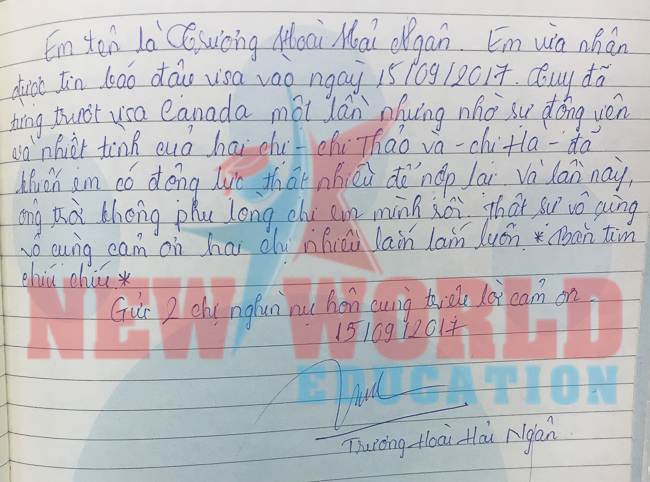 Em tên là Trương Hoài Hải Ngân. Em vừa nhận
được tin báo đậu visa vào ngày 15/09/2017. Tuy đã
từng trượt visa Canada một lần nhưng nhờ sự động viên
và nhiệt tình của hai chị - chị Thảo và - chị Hà - đã
khiến em có động lực thật nhiều để nộp lại. Và lần này,
ông trời không phụ lòng chị em mình rồi. Thật sự vô cùng
vô cùng cảm ơn hai chị nhiều lắm lắm luôn. *Bắn tim
chíu chíu.*
Gửi 2 chị nghìn nụ hôn cùng triệu lời cảm ơn.
NEW WORLD
15/09/2017
EDUCATION
Trương Hoài Hải Ngân